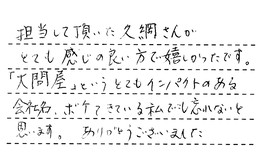 担当して頂いた久綱さんが
とても感じの良い方で嬉しかったです。
「大問屋」というとてもインパクトのある
会社名、ボケてきている私でも忘れないと
思います。ありがとうございました